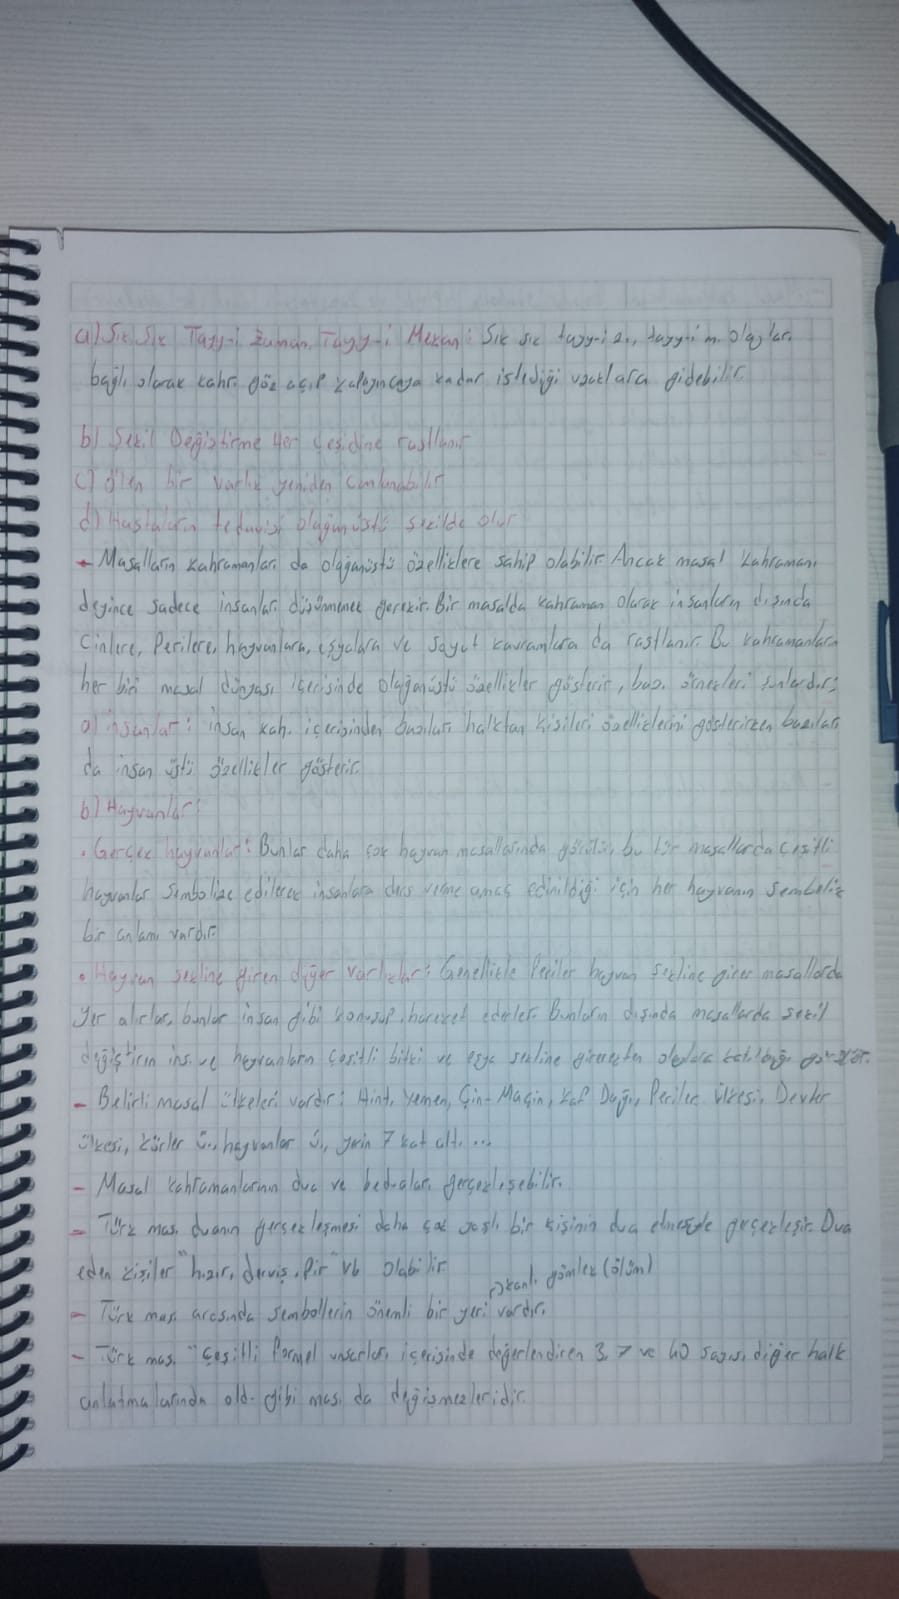 a) Sık Sık Tayy-i Zaman, Tayy-i Mekan: Sık sık tayy-i z., tayy-i m. olayları
bağlı olarak kahr. göz açıp kapayıncaya kadar istediği uzaklara gidebilir.
b) Şekil Değiştirme Her Çeşidine rastlanır
c) Ölen bir varlık yeniden canlanabilir
d) Hastaların tedavisi olağanüstü şekilde olur
- Masalların kahramanları da olağanüstü özelliklere sahip olabilir. Ancak masal kahramanı
deyince sadece insanları düşünmemek gerekir. Bir masalda kahraman olarak insanların dışında
Cinlere, Perilere, hayvanlara, eşyalara ve soyut kavramlara da rastlanır. Bu kahramanların
her biri masal dünyası içerisinde olağanüstü özellikler gösterir, bazı örnekleri şunlardır;
a) İnsanlar: İnsan kah. içerisinden bazıları halktan kişileri özelliklerini gösterirken bazıları
da insan üstü özellikler gösterir.
b) Hayvanlar:
• Gerçek hayvanlar: Bunlar daha çok hayvan masallarında görülür, bu tür masallarda çeşitli
hayvanlar sembolize edilerek insanlara ders verme amaç edinildiği için her hayvanın sembolik
bir anlamı vardır.
• Hayvan şekline giren diğer varlıklar: Genellikle Periler hayvan şekline girer masallarda
yer alırlar, bunlar insan gibi konuşup, hareket ederler. Bunların dışında masallarda şekil
değiştiren ins. ve hayvanların çeşitli bitki ve eşya şekline girerekten olaylara katıldığı görülür.
- Belirli masal ülkeleri vardır: Hint, Yemen, Çin-Maçin, Kaf Dağı, Periler ülkesi, Devler
ülkesi, körler ü., hayvanlar ü., yerin 7 kat altı...
- Masal kahramanlarının dua ve bedduaları gerçekleşebilir.
- Türk mas. duanın gerçekleşmesi daha çok yaşlı bir kişinin dua etmesiyle gerçekleşir. Dua
eden kişiler "hızır, derviş, Pir" vb olabilir
kanlı gömlek (ölüm)
- Türk mas. arasında sembollerin önemli bir yeri vardır.
- Türk mas. "Çeşitli formel unsurları içerisinde değerlendiren 3, 7 ve 40 sayısı diğer halk
anlatmalarında old. gibi mas. da değişmezleridir.